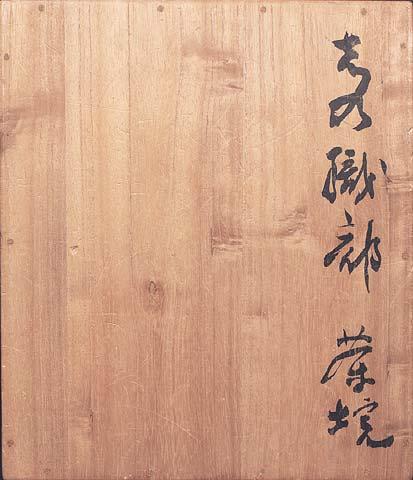 志乃織部 茶埦